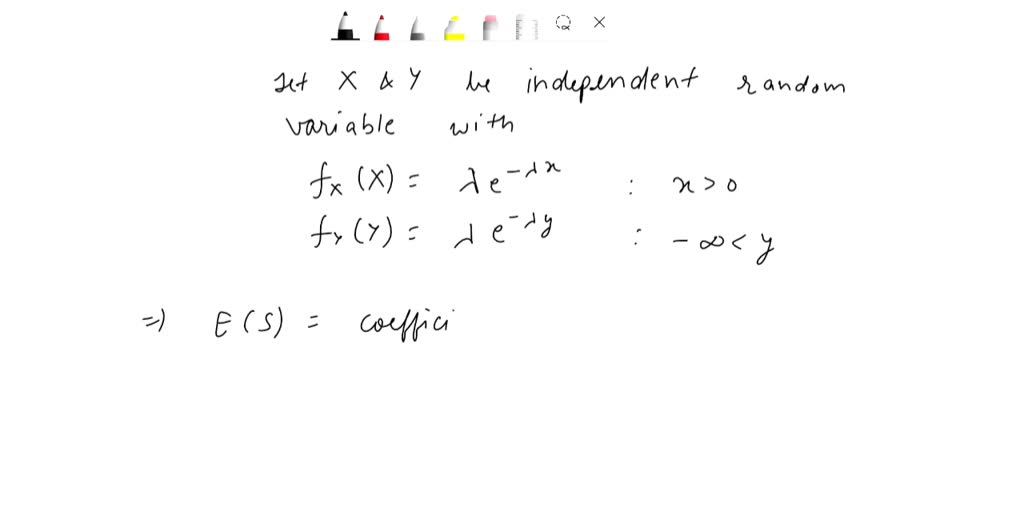 Let X & Y be independent random
variable with
fₓ (X) = λe^{-λx} : x > 0
f_Y (Y) = λ e^{-λy} : - ∞ < y
⇒ E(S) = coeffici